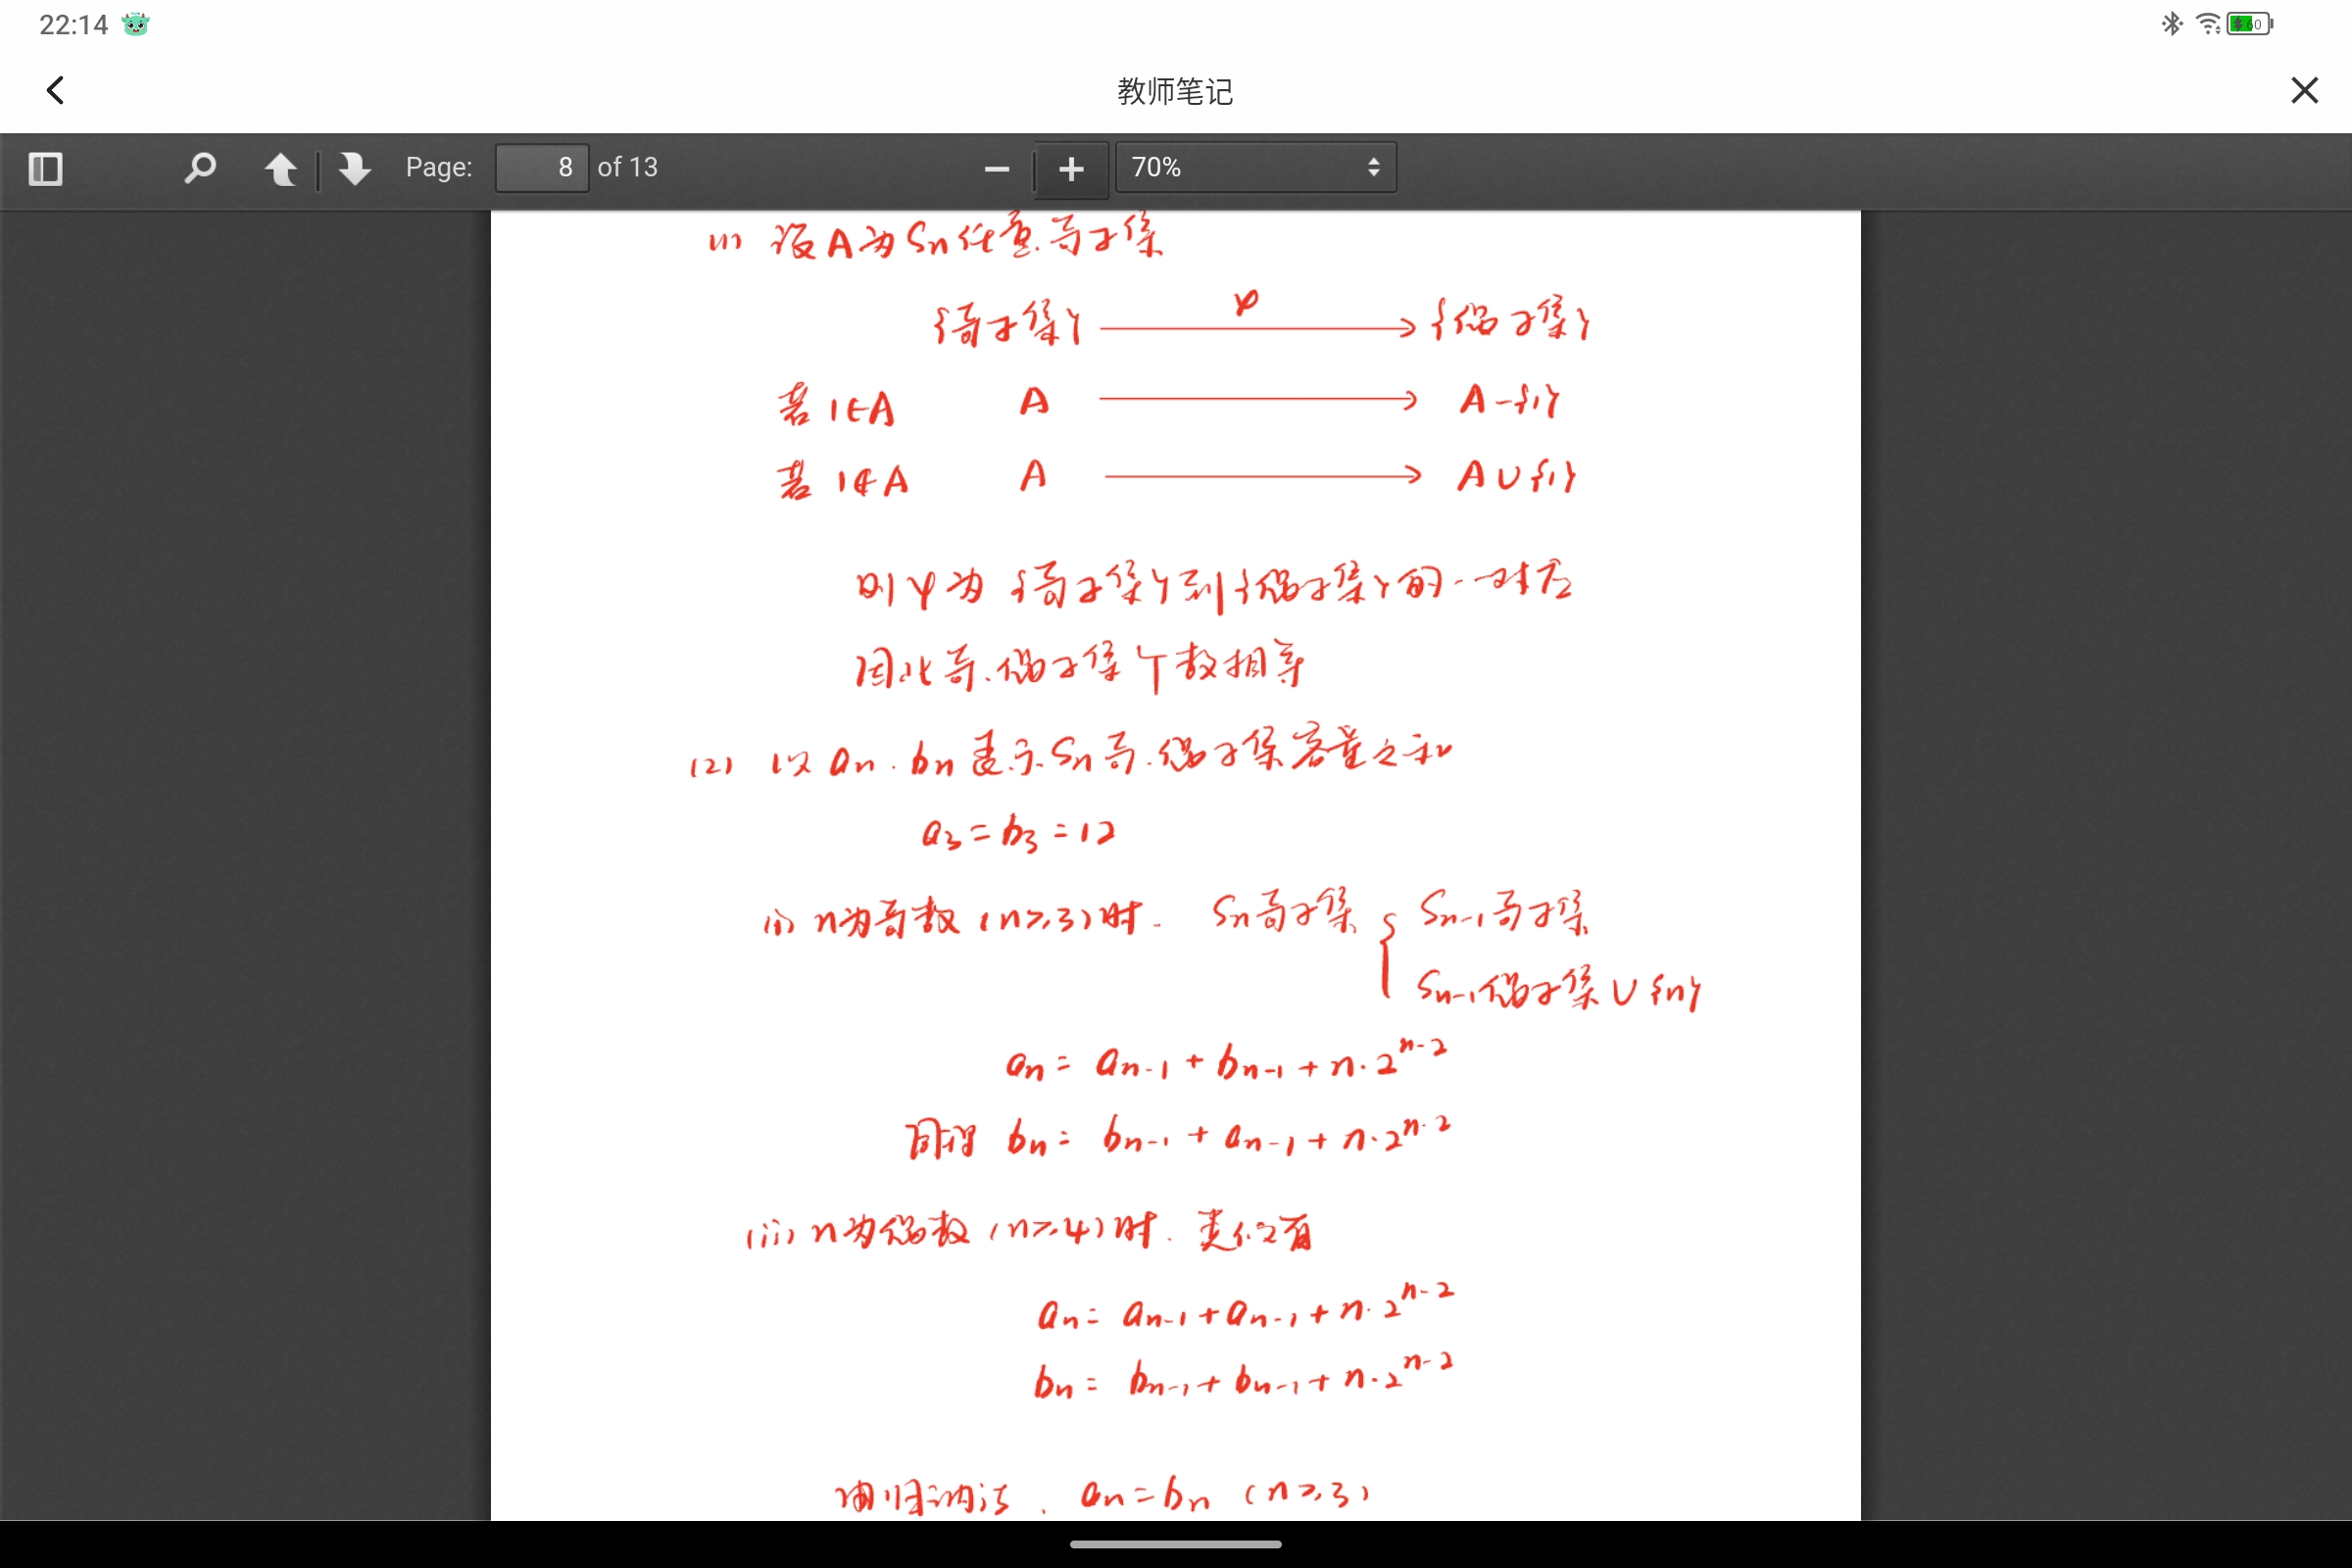 22:14
60
教师笔记
Page: 8 of 13
70%
(1) 设A为Sn任意奇子集
{奇子集} φ→ {偶子集}
若 1∈A A → A-{1}
若 1∉A A → A∪{1}
则φ为{奇子集}到{偶子集}的一一对应
因此奇、偶子集个数相等
(2) 以 an、bn表示Sn奇、偶子集容量之和
a₃=b₃=12
(i) n为奇数(n≥3)时. Sn奇子集 { Sn-1奇子集
Sn-1偶子集∪{n}
aₙ= aₙ₋₁+bₙ₋₁+n·2ⁿ⁻²
同理 bₙ= bₙ₋₁+aₙ₋₁+n·2ⁿ⁻²
(ii) n为偶数(n≥4)时. 类似有
aₙ= aₙ₋₁+aₙ₋₁+n·2ⁿ⁻²
bₙ= bₙ₋₁+bₙ₋₁+n·2ⁿ⁻²
由归纳法. aₙ=bₙ (n≥3)